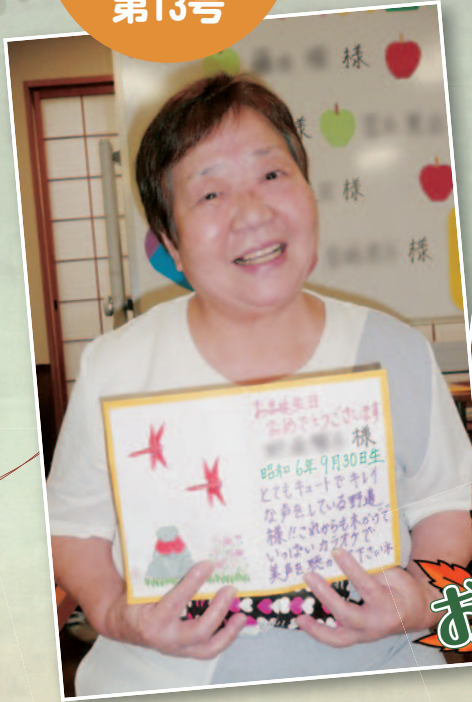 第13号
様
様
様
様
お誕生日
おめでとうございます
様
昭和6年9月30日生
とてもキュートでキレイ
な声をしている野邉
様!!これからも
いっぱいカラオケで
美声を聴かせて下さいネ
お